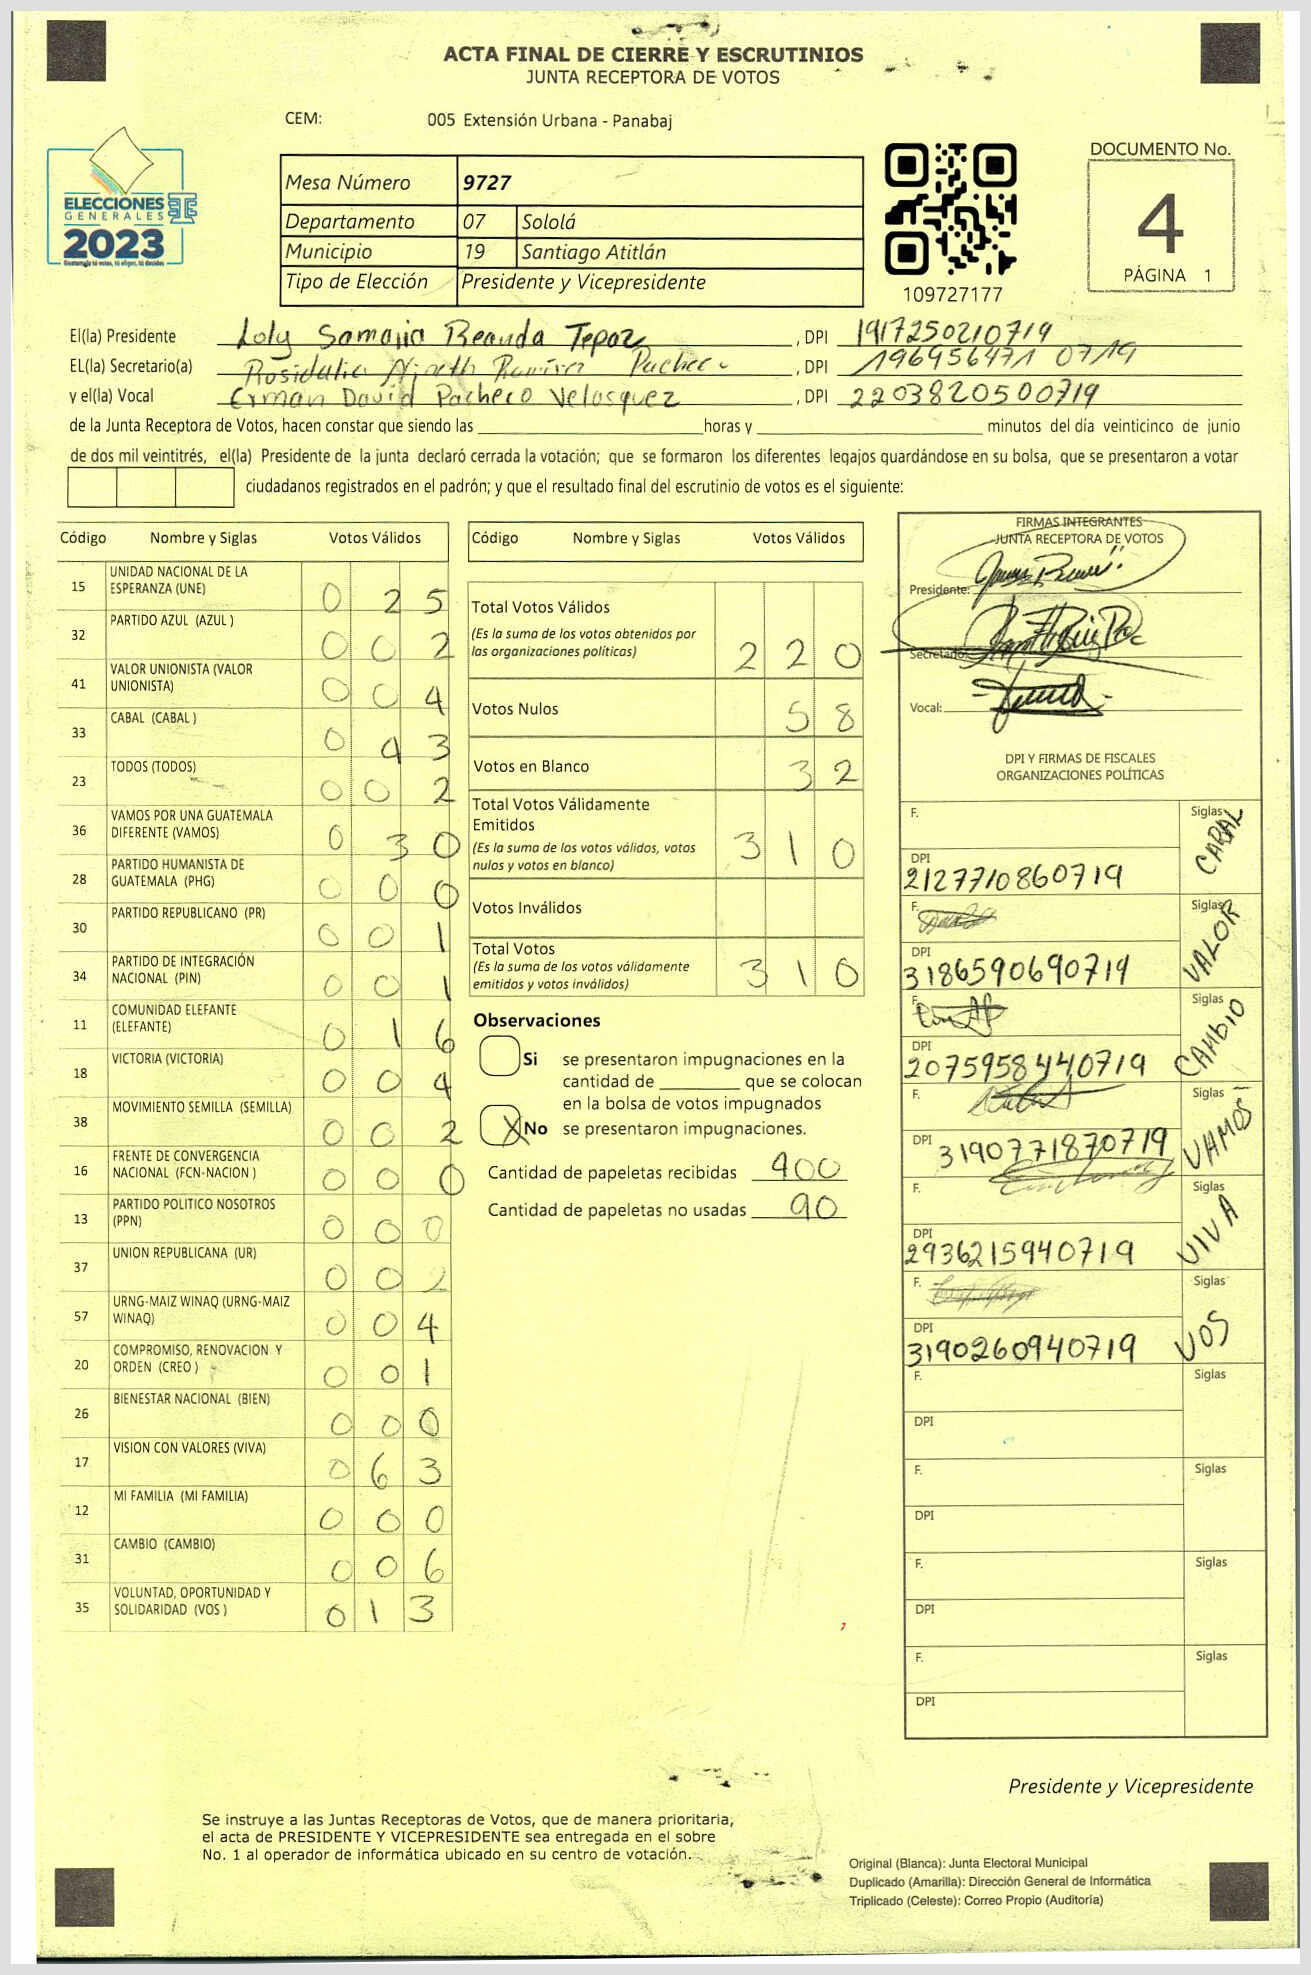 ACTA FINAL DE CIERRE Y ESCRUTINIOS
JUNTA RECEPTORA DE VOTOS
CEM: 005 Extensión Urbana - Panabaj
ELECCIONES
GENERALES
2023
Guatemala tú votas, tú eliges, tú decides
Mesa Número 9727
Departamento 07 Sololá
Municipio 19 Santiago Atitlán
Tipo de Elección Presidente y Vicepresidente
109727177
DOCUMENTO No.
4
PÁGINA 1
El(la) Presidente Loly Reanda Tepaz, DPI 1917250210719
EL(la) Secretario(a) Rosidalia Pacheco, DPI 196956471 0719
y el(la) Vocal Erman David Pacheco Velasquez, DPI 2203820500719
de la Junta Receptora de Votos, hacen constar que siendo las horas y minutos del día veinticinco de junio
de dos mil veintitrés, el(la) Presidente de la junta declaró cerrada la votación; que se formaron los diferentes legajos guardándose en su bolsa, que se presentaron a votar
ciudadanos registrados en el padrón; y que el resultado final del escrutinio de votos es el siguiente:
Código Nombre y Siglas Votos Válidos
15 UNIDAD NACIONAL DE LA
ESPERANZA (UNE) 0 2 5
32 PARTIDO AZUL (AZUL ) 0 0 2
41 VALOR UNIONISTA (VALOR
UNIONISTA) 0 0 4
33 CABAL (CABAL ) 0 4 3
23 TODOS (TODOS) 0 0 2
36 VAMOS POR UNA GUATEMALA
DIFERENTE (VAMOS) 0 3 0
28 PARTIDO HUMANISTA DE
GUATEMALA (PHG) 0 0 0
30 PARTIDO REPUBLICANO (PR) 0 0 1
34 PARTIDO DE INTEGRACIÓN
NACIONAL (PIN) 0 0 1
11 COMUNIDAD ELEFANTE
(ELEFANTE) 0 1 6
18 VICTORIA (VICTORIA) 0 0 4
38 MOVIMIENTO SEMILLA (SEMILLA) 0 0 2
16 FRENTE DE CONVERGENCIA
NACIONAL (FCN-NACION ) 0 0 0
13 PARTIDO POLITICO NOSOTROS
(PPN) 0 0 0
37 UNION REPUBLICANA (UR) 0 0 2
57 URNG-MAIZ WINAQ (URNG-MAIZ
WINAQ) 0 0 4
20 COMPROMISO, RENOVACION Y
ORDEN (CREO ) 0 0 1
26 BIENESTAR NACIONAL (BIEN) 0 0 0
17 VISION CON VALORES (VIVA) 0 6 3
12 MI FAMILIA (MI FAMILIA) 0 0 0
31 CAMBIO (CAMBIO) 0 0 6
35 VOLUNTAD, OPORTUNIDAD Y
SOLIDARIDAD (VOS ) 0 1 3
Código Nombre y Siglas Votos Válidos
Total Votos Válidos
(Es la suma de los votos obtenidos por
las organizaciones políticas) 2 2 0
Votos Nulos 5 8
Votos en Blanco 3 2
Total Votos Válidamente
Emitidos
(Es la suma de los votos válidos, votos
nulos y votos en blanco) 3 1 0
Votos Inválidos
Total Votos
(Es la suma de los votos válidamente
emitidos y votos inválidos) 3 1 0
Observaciones
Si se presentaron impugnaciones en la
cantidad de que se colocan
en la bolsa de votos impugnados
X No se presentaron impugnaciones.
Cantidad de papeletas recibidas 400
Cantidad de papeletas no usadas 90
FIRMAS INTEGRANTES
JUNTA RECEPTORA DE VOTOS
Presidente:
Secretario:
Vocal:
DPI Y FIRMAS DE FISCALES
ORGANIZACIONES POLÍTICAS
F. Siglas CABAL
DPI
2127710860719
F. Siglas VALOR
DPI
3186590690719
F. Siglas CAMBIO
DPI
2075958440719
F. Siglas VAMOS
DPI 3190771870719
F. Siglas VIVA
DPI
2936215940719
F. Siglas VOS
DPI
3190260940719
F. Siglas
DPI
F. Siglas
DPI
F. Siglas
DPI
F. Siglas
DPI
Presidente y Vicepresidente
Se instruye a las Juntas Receptoras de Votos, que de manera prioritaria,
el acta de PRESIDENTE Y VICEPRESIDENTE sea entregada en el sobre
No. 1 al operador de informática ubicado en su centro de votación.
Original (Blanca): Junta Electoral Municipal
Duplicado (Amarilla): Dirección General de Informática
Triplicado (Celeste): Correo Propio (Auditoría)